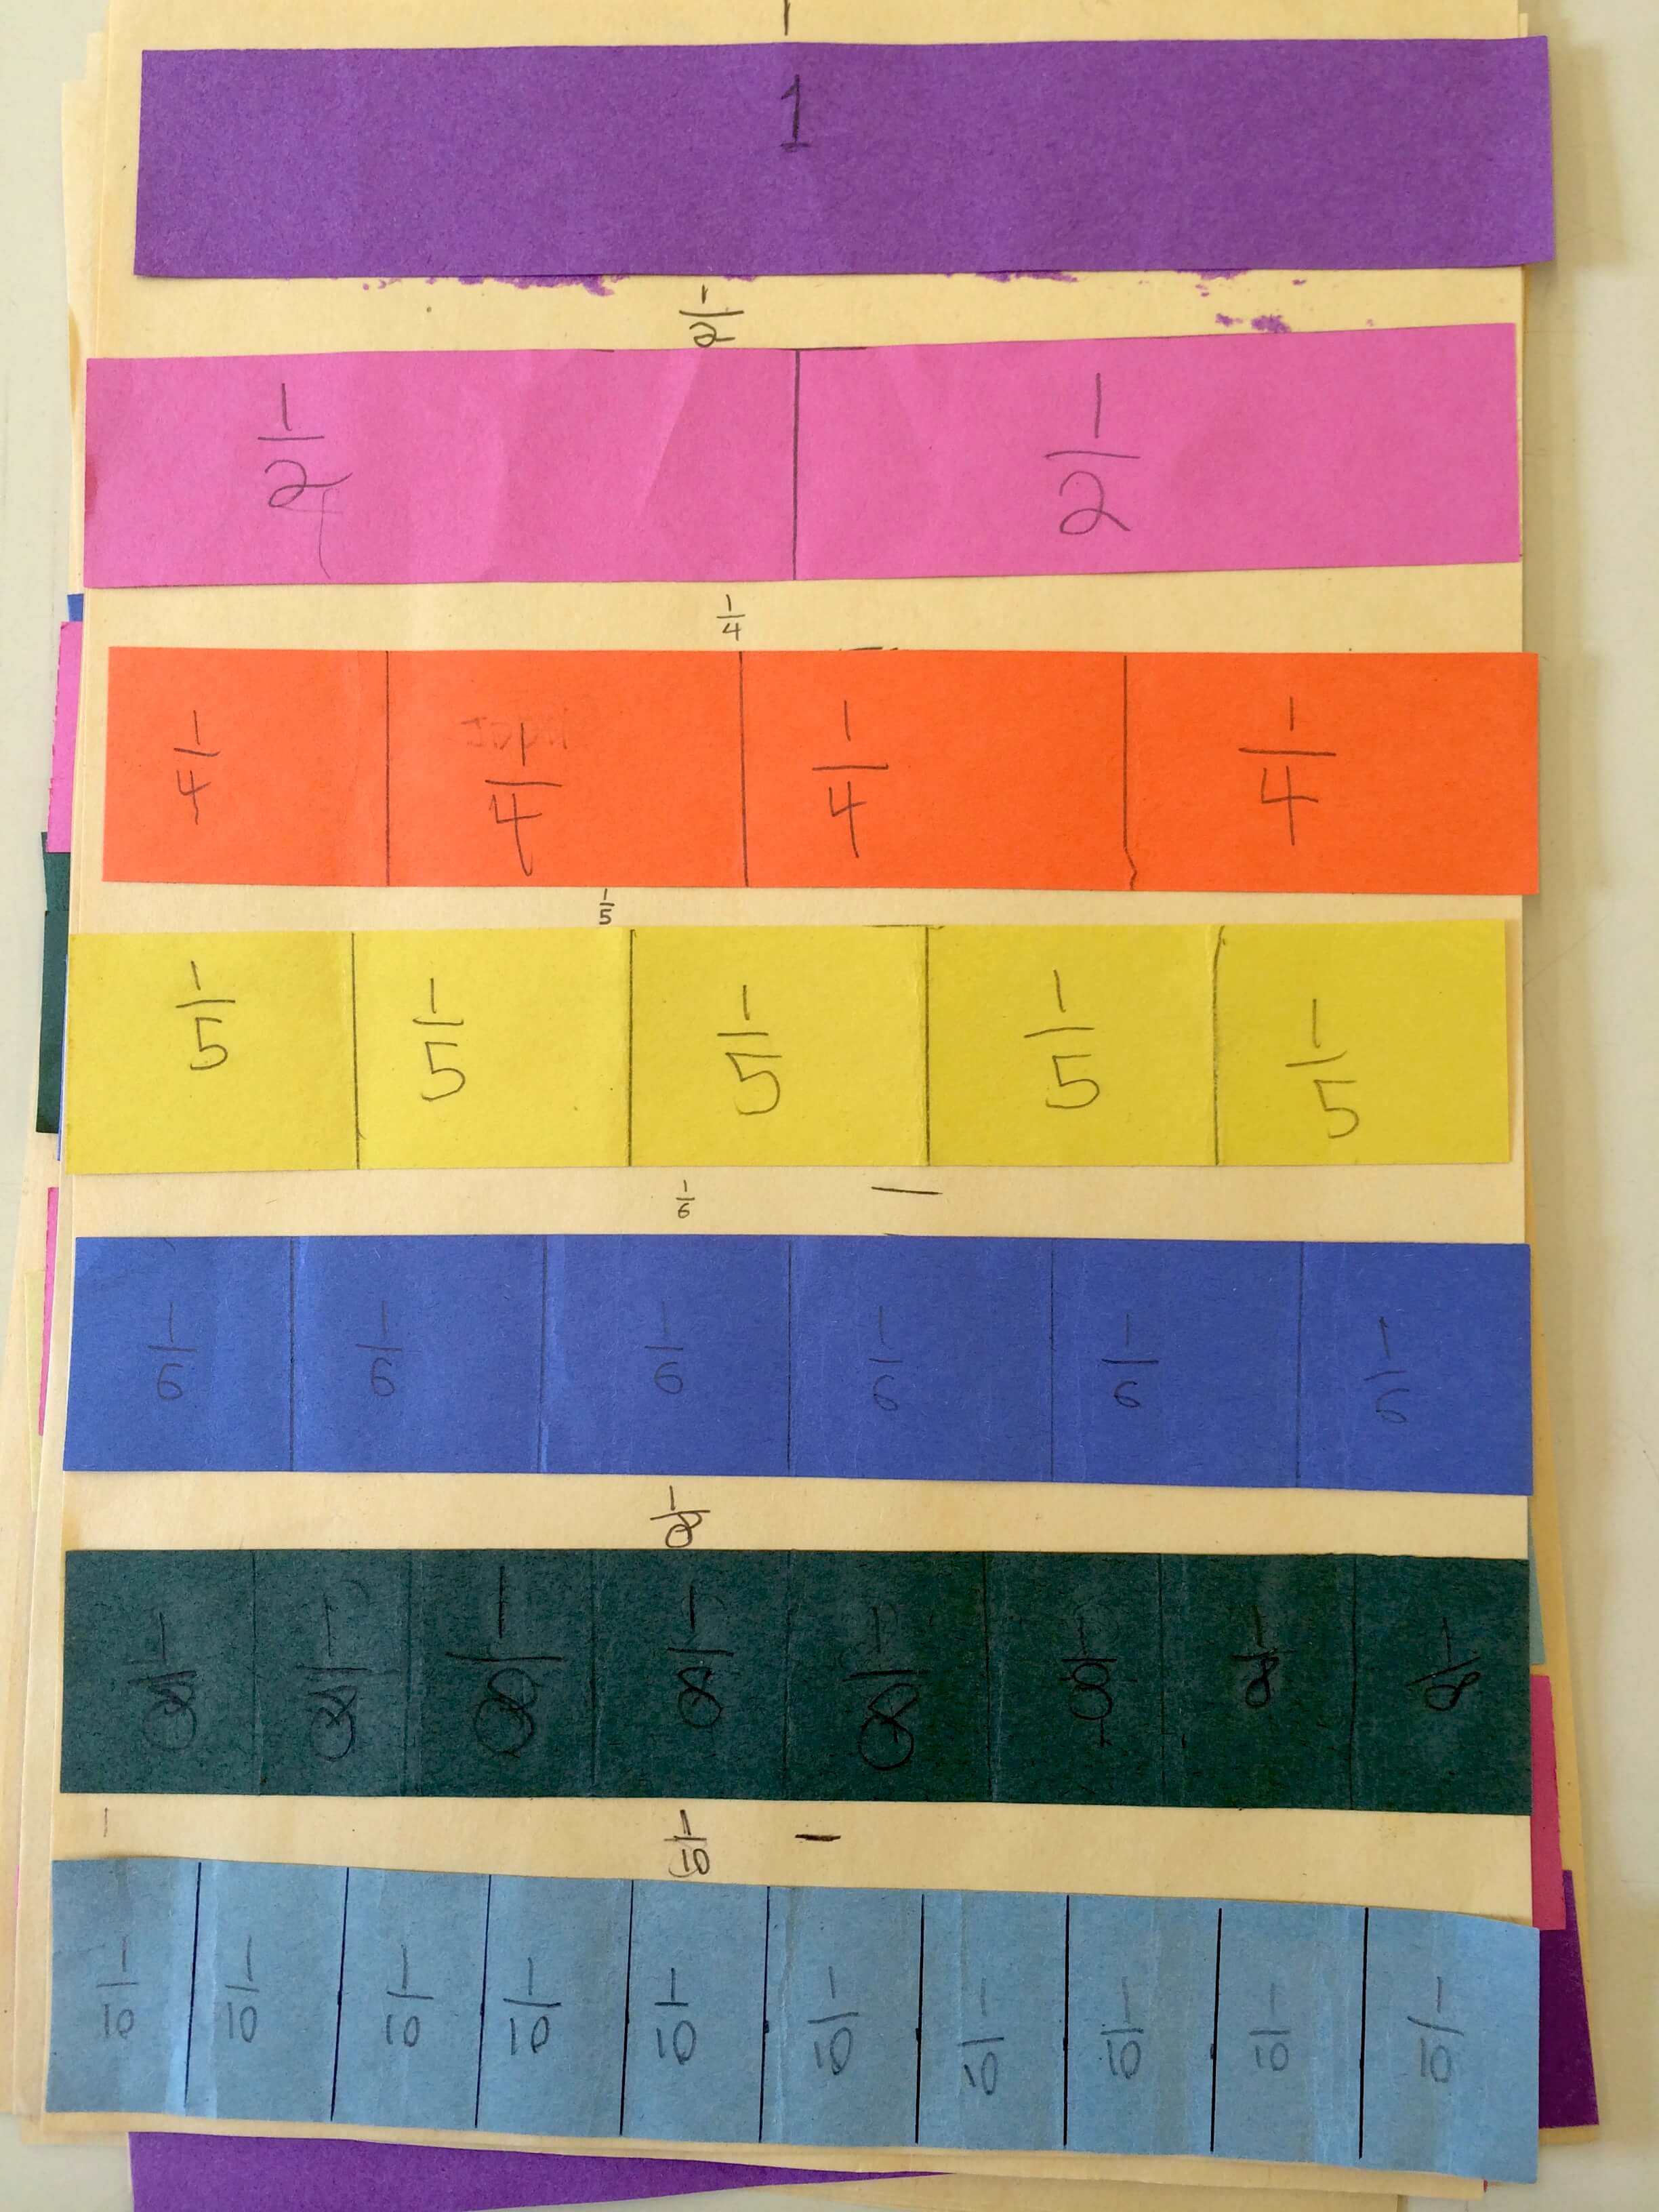 1
1
1/2
1/2 1/2
1/4
1/4 1/4 1/4 1/4
1/5
1/5 1/5 1/5 1/5 1/5
1/6
1/6 1/6 1/6 1/6 1/6 1/6
1/8
1/8 1/8 1/8 1/8 1/8 1/8 1/8 1/8
1/10
1/10 1/10 1/10 1/10 1/10 1/10 1/10 1/10 1/10 1/10